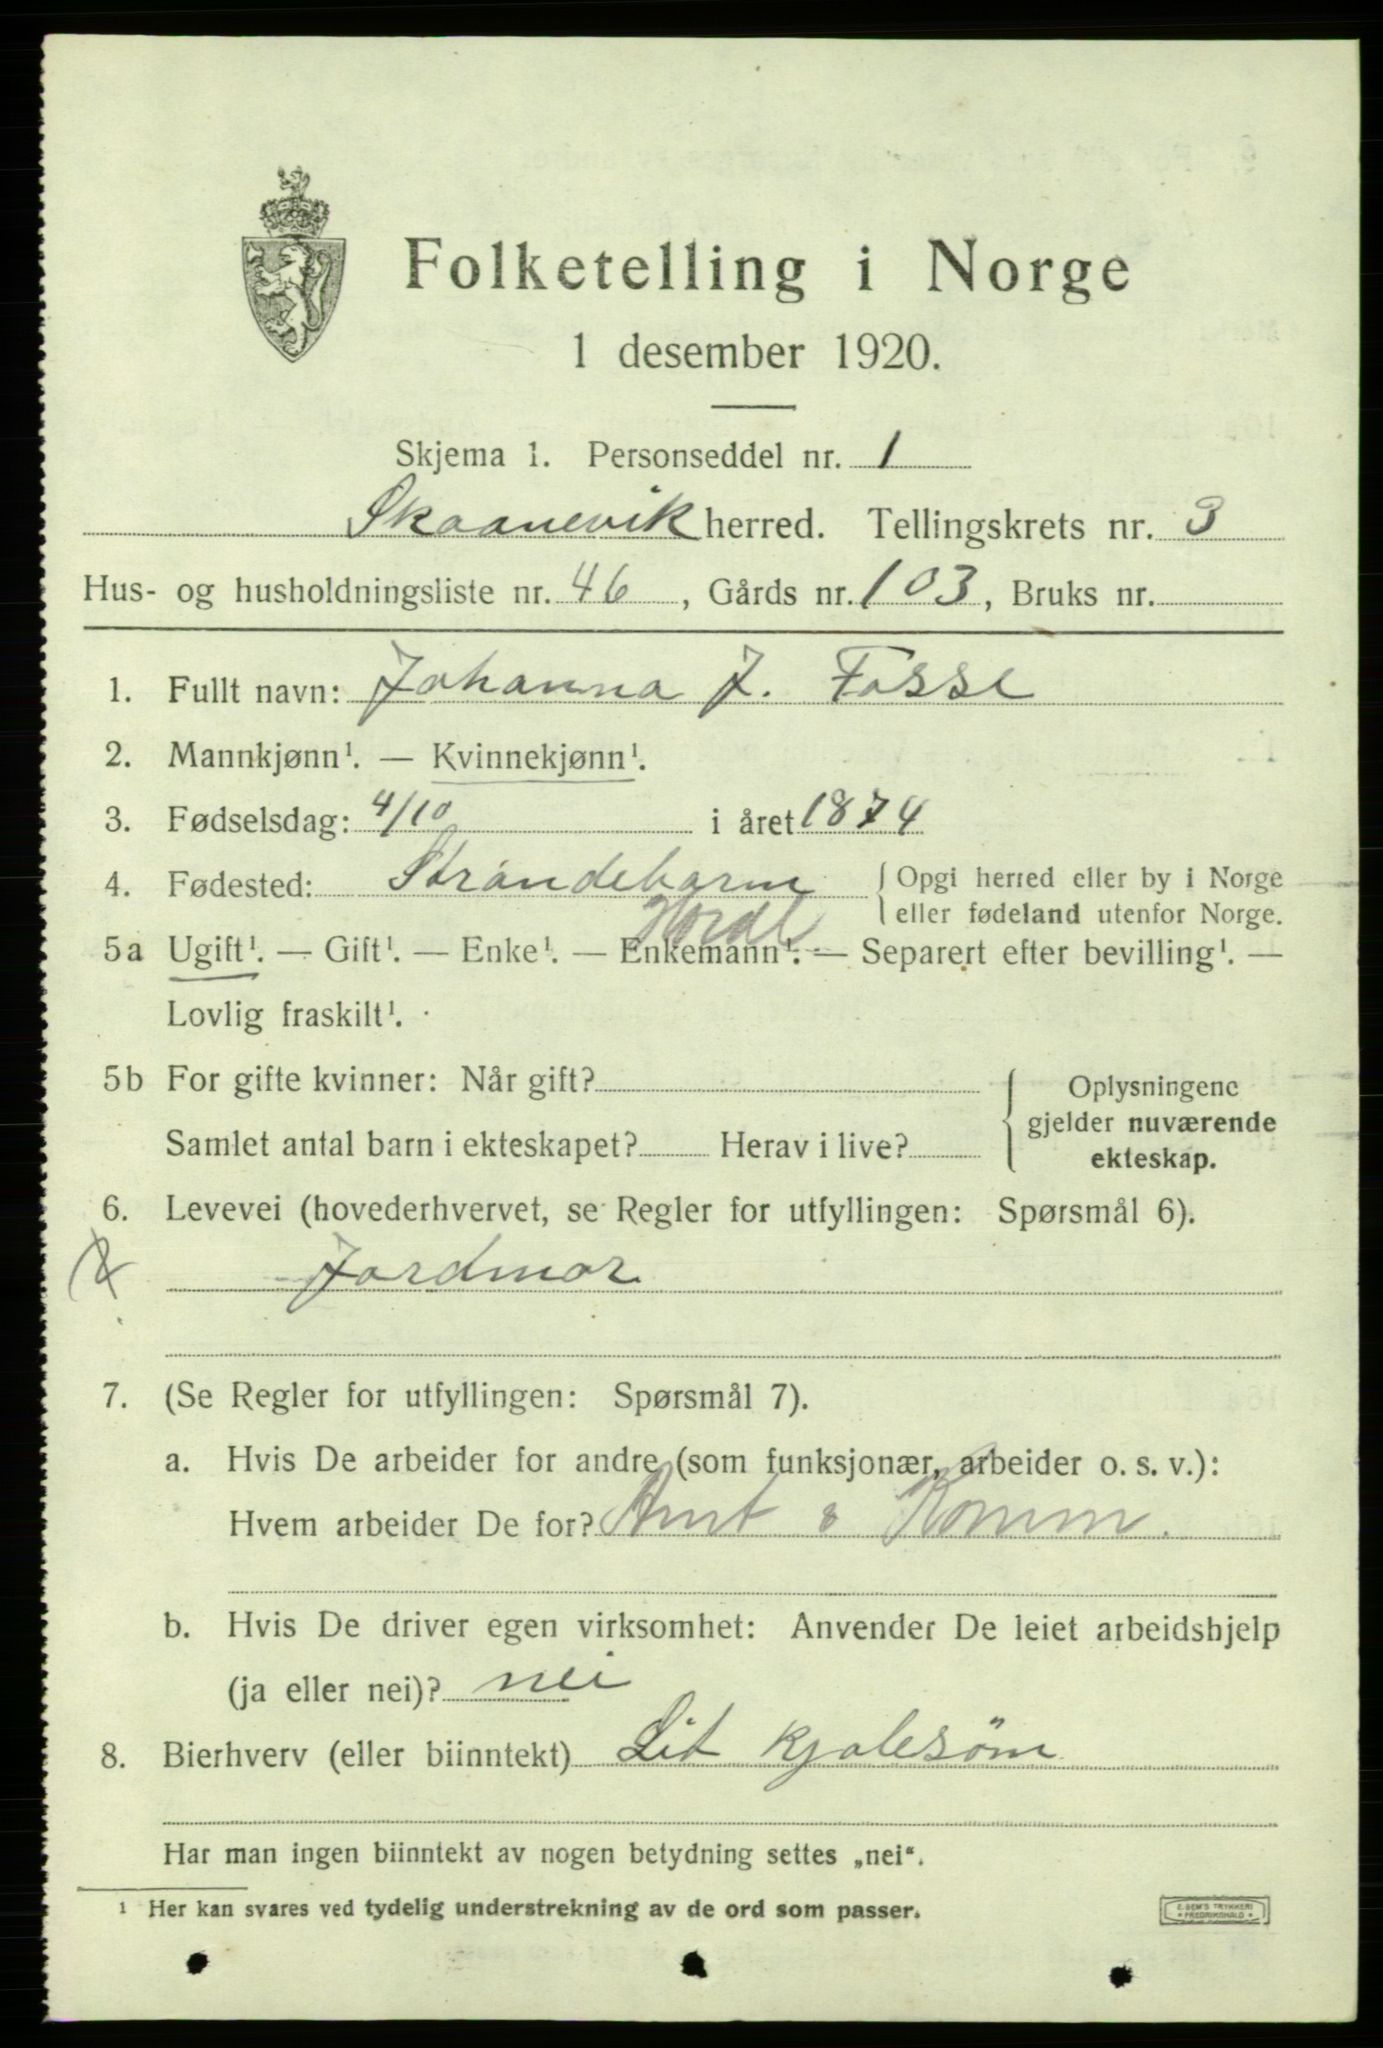 Folketelling i Norge
1 desember 1920.
Skjema 1. Personseddel nr. 1
Skaanevik herred. Tellingskrets nr. 3
Hus- og husholdningsliste nr. 46, Gårds nr. 103, Bruks nr.
1. Fullt navn: Johanna J. Fosse
2. Mannkjønn¹. — Kvinnekjønn¹.
3. Fødselsdag: 4/10 i året 1874
4. Fødested: Strandebarm { Opgi herred eller by i Norge
eller fødeland utenfor Norge.
Hordl
5a Ugift¹. — Gift¹. — Enke¹. — Enkemann¹. — Separert efter bevilling¹. —
Lovlig fraskilt¹.
5b For gifte kvinner: Når gift? { Oplysningene
gjelder nuværende
Samlet antal barn i ekteskapet? Herav i live?
ekteskap.
6. Levevei (hovederhvervet, se Regler for utfyllingen: Spørsmål 6).
Jordmor
7. (Se Regler for utfyllingen: Spørsmål 7).
a. Hvis De arbeider for andre (som funksjonær, arbeider o. s. v.):
Hvem arbeider De for? Amt o Komm.
b. Hvis De driver egen virksomhet: Anvender De leiet arbeidshjelp
(ja eller nei)? nei
8. Bierhverv (eller biinntekt) Lit kjolesøm
Har man ingen biinntekt av nogen betydning settes „nei“.
¹ Her kan svares ved tydelig understrekning av de ord som passer.
E. SEM'S TRYKKERI
• FREDRIKSHALD •